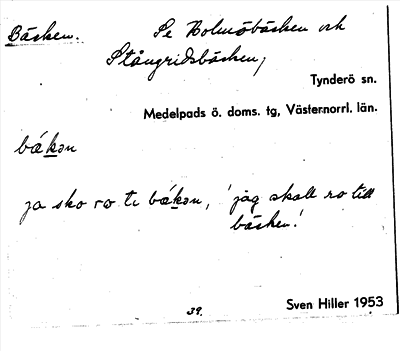 Bäsken. Se Holmöbäsken och
Stångridsbäsken,
Tynderö sn.
Medelpads ö. doms. tg, Västernorrl. län.
bǽkən
ja sko ro te bǽkən, 'jag skall ro till
bäsken'.
39.
Sven Hiller 1953